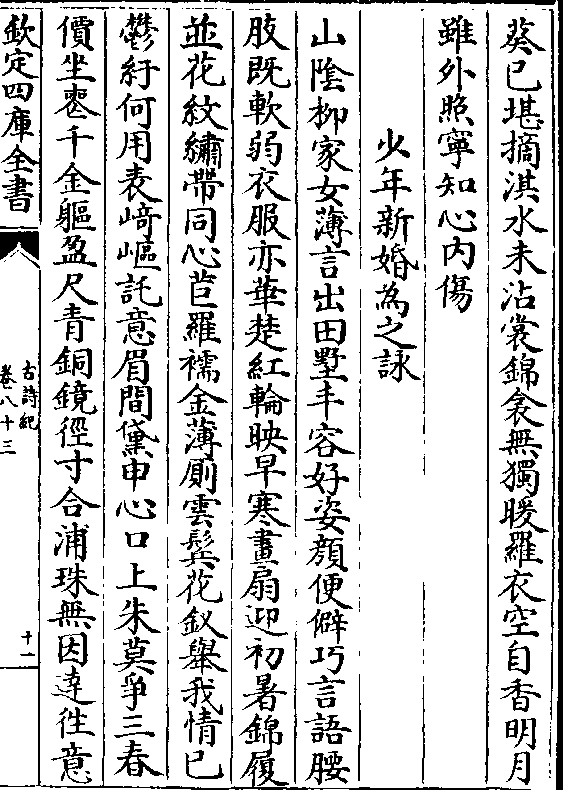 葵已堪摘淇水未沾裳錦衾無獨暖羅衣空自香明月
雖外照寧知心内傷
少年新婚為之詠
山陰柳家女薄言出田墅丰容好姿顔便僻巧言語腰
肢既軟弱衣服亦華楚紅輪映早寒畫扇迎初暑錦履
並花紋繡帶同心苣羅襦金薄厠雲鬂花釵舉我情已
鬱紆何用表崎嶇託意眉間黛申心口上朱莫爭三春
價坐喪千金軀盈尺青銅鏡徑寸合浦珠無因達徃意
欽定四庫全書
古詩紀
卷八十三
十一